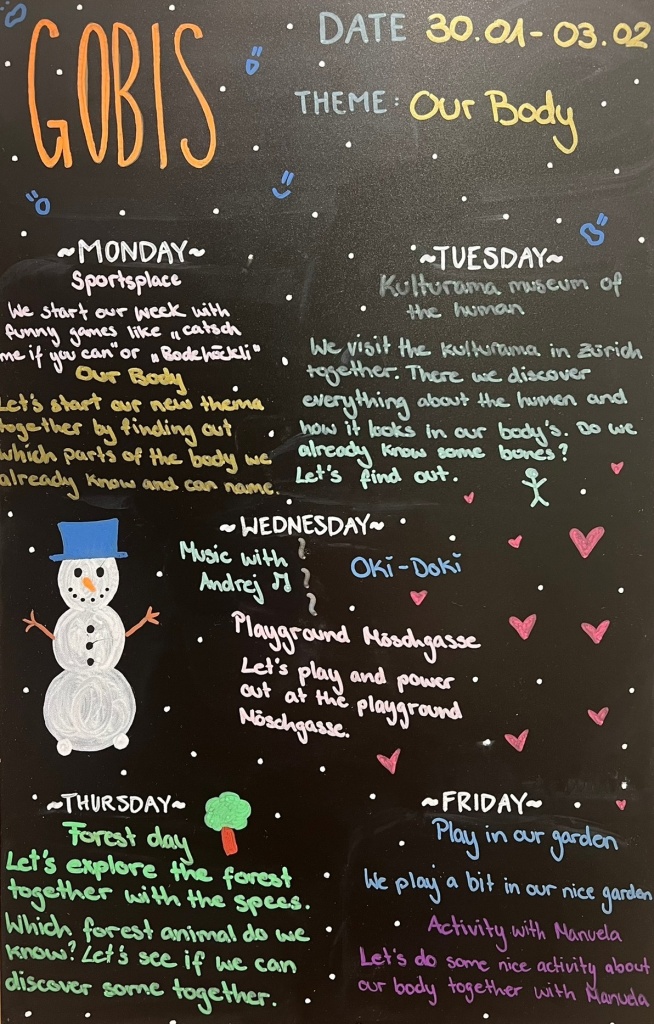 GOBIS
DATE 30.01-03.02
THEME: Our Body
~MONDAY~
Sportsplace
We start our week with
funny games like „catsch
me if you can" or „Bodehöckli"
Our Body
Let's start our new thema
together by finding out
which parts of the body we
already know and can name.
~TUESDAY~
Kulturama museum of
the human
We visit the Kulturama in Zürich
together. There we discover
everything about the human and
how it looks in our body's. Do we
already know some bones?
Let's find out.
~WEDNESDAY~
Music with
Andrej
Oki-Doki
Playground Möschgasse
Let's play and power
out at the playground
Möschgasse.
~THURSDAY~
Forest day
Let's explore the forest
together with the spees.
Which forest animal do we
know? Let's see if we can
discover some together.
~FRIDAY~
Play in our garden
We play a bit in our nice garden
Activity with Manuela
Let's do some nice activity about
our body together with Manuela